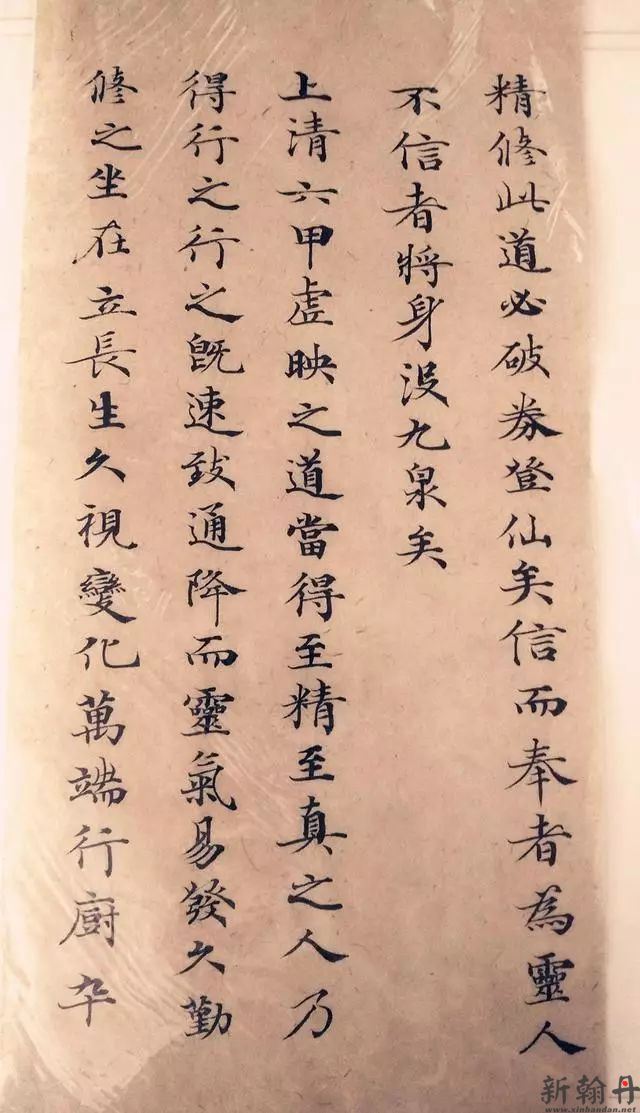 精修此道必破券登仙矣信而奉者為靈人
不信者將身沒九泉矣
上清六甲虛映之道當得至精至真之人乃
得行之行之既速致通降而靈氣易發久勤
修之坐在立長生久視變化萬端行廚卒
新翰丹
www.xinhandan.net